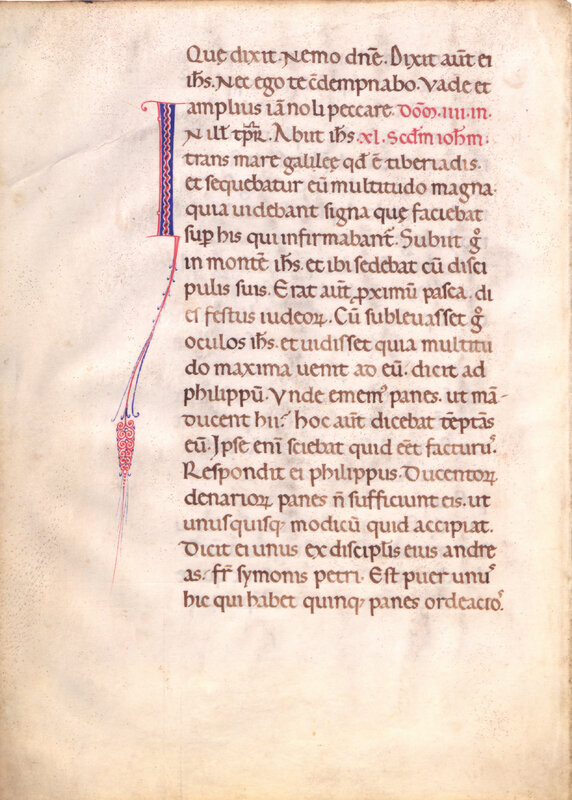 Quę dixit. Nemo dn̄e. Dixit aūt ei
ih̄s. Nec ego te c̄dempnabo. Vade et
amplius iā noli peccare. Dōm̄. iiii. in.
IN ill̄ tp̄r̄. Abiit ih̄s. xl. Scd̄m ioh̄m.
trans mare galileę qd̄ ē tiberiadis.
et sequebatur eū multitudo magna.
quia uidebant signa quę faciebat
sup̄ his qui infirmabant̄. Subiit g̊
in montē ih̄s. et ibi sedebat cū disci
pulis suis. Erat aūt ꝓximū pasca. di
es festus iudeoꝝ. Cū subleuasset g̊
oculos ih̄s. et uidisset quia multitu
do maxima uenit ad eū. dicit ad
philippū. Vnde ememꝰ panes. ut mā-
ducent hii? hoc aūt dicebat tēptās
eū. Ipse enī sciebat quid eēt facturꝰ.
Respondit ei philippus. Ducentoꝝ
denarioꝝ panes n̄ sufficiunt eis. ut
unusquisqꝫ modicū quid accipiat.
Dicit ei unus ex discipl̄is eius andre
as. fr̄ symonis petri. Est puer unꝰ
hic qui habet quinqꝫ panes ordeacioꝰ.